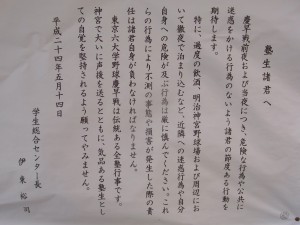 塾生諸君へ
慶早戦前夜および当夜につき、危険な行為や公共に
迷惑をかける行為のないよう諸君の節度ある行動を
期待します。
特に、過度の飲酒、明治神宮野球場および周辺にお
いて徹夜で泊まり込むなど、近隣への迷惑行為や自分
自身への危険が及ぶ行為は厳に慎んでください。これ
らの行為により不測の事態や損害が発生した際の責
任は諸君自身が負わなければなりません。
東京六大学野球慶早戦は伝統ある全塾行事です。
神宮で大いに声援を送るとともに、気品ある塾生とし
ての自覚を堅持されるよう願ってやみません。
平成二十四年五月十四日
学生総合センター長
伊東裕司